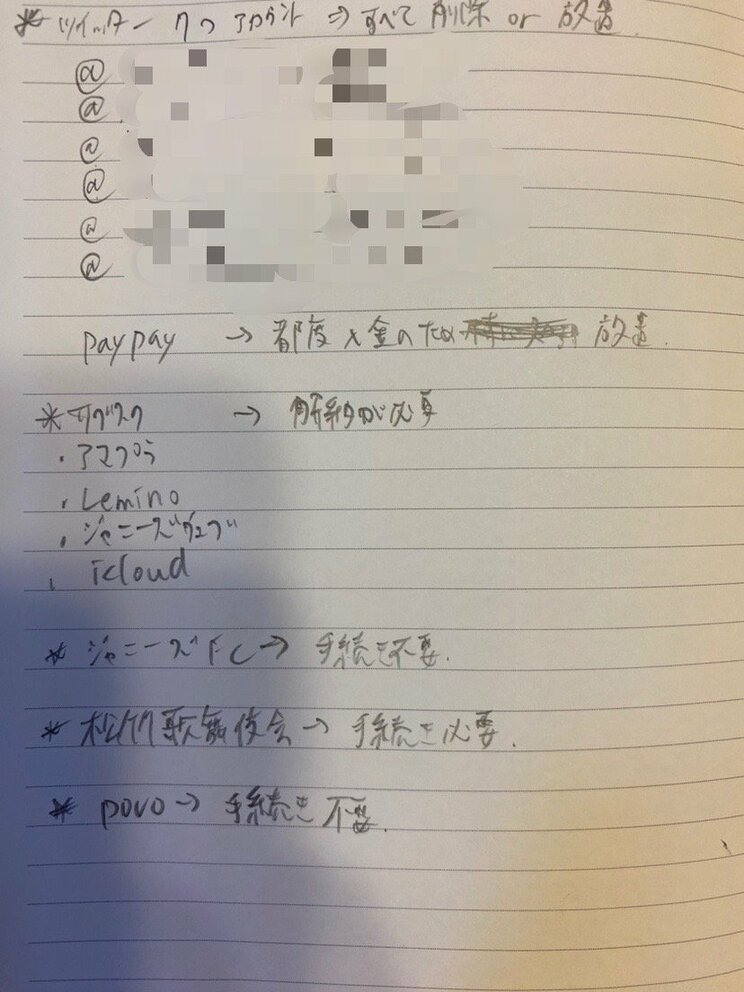 * ツイッター 7つ アカウント ⇒ すべて 削除 or 放置
@
@
@
@
@
@
paypay → 都度入金のため 放置.
* サブスク → 解約が必要
・アマプラ
・Lemino
・ジャニーズウェブ
・icloud
* ジャニーズFC → 手続き不要.
* 松竹歌舞伎会 → 手続き必要.
* povo → 手続き不要.